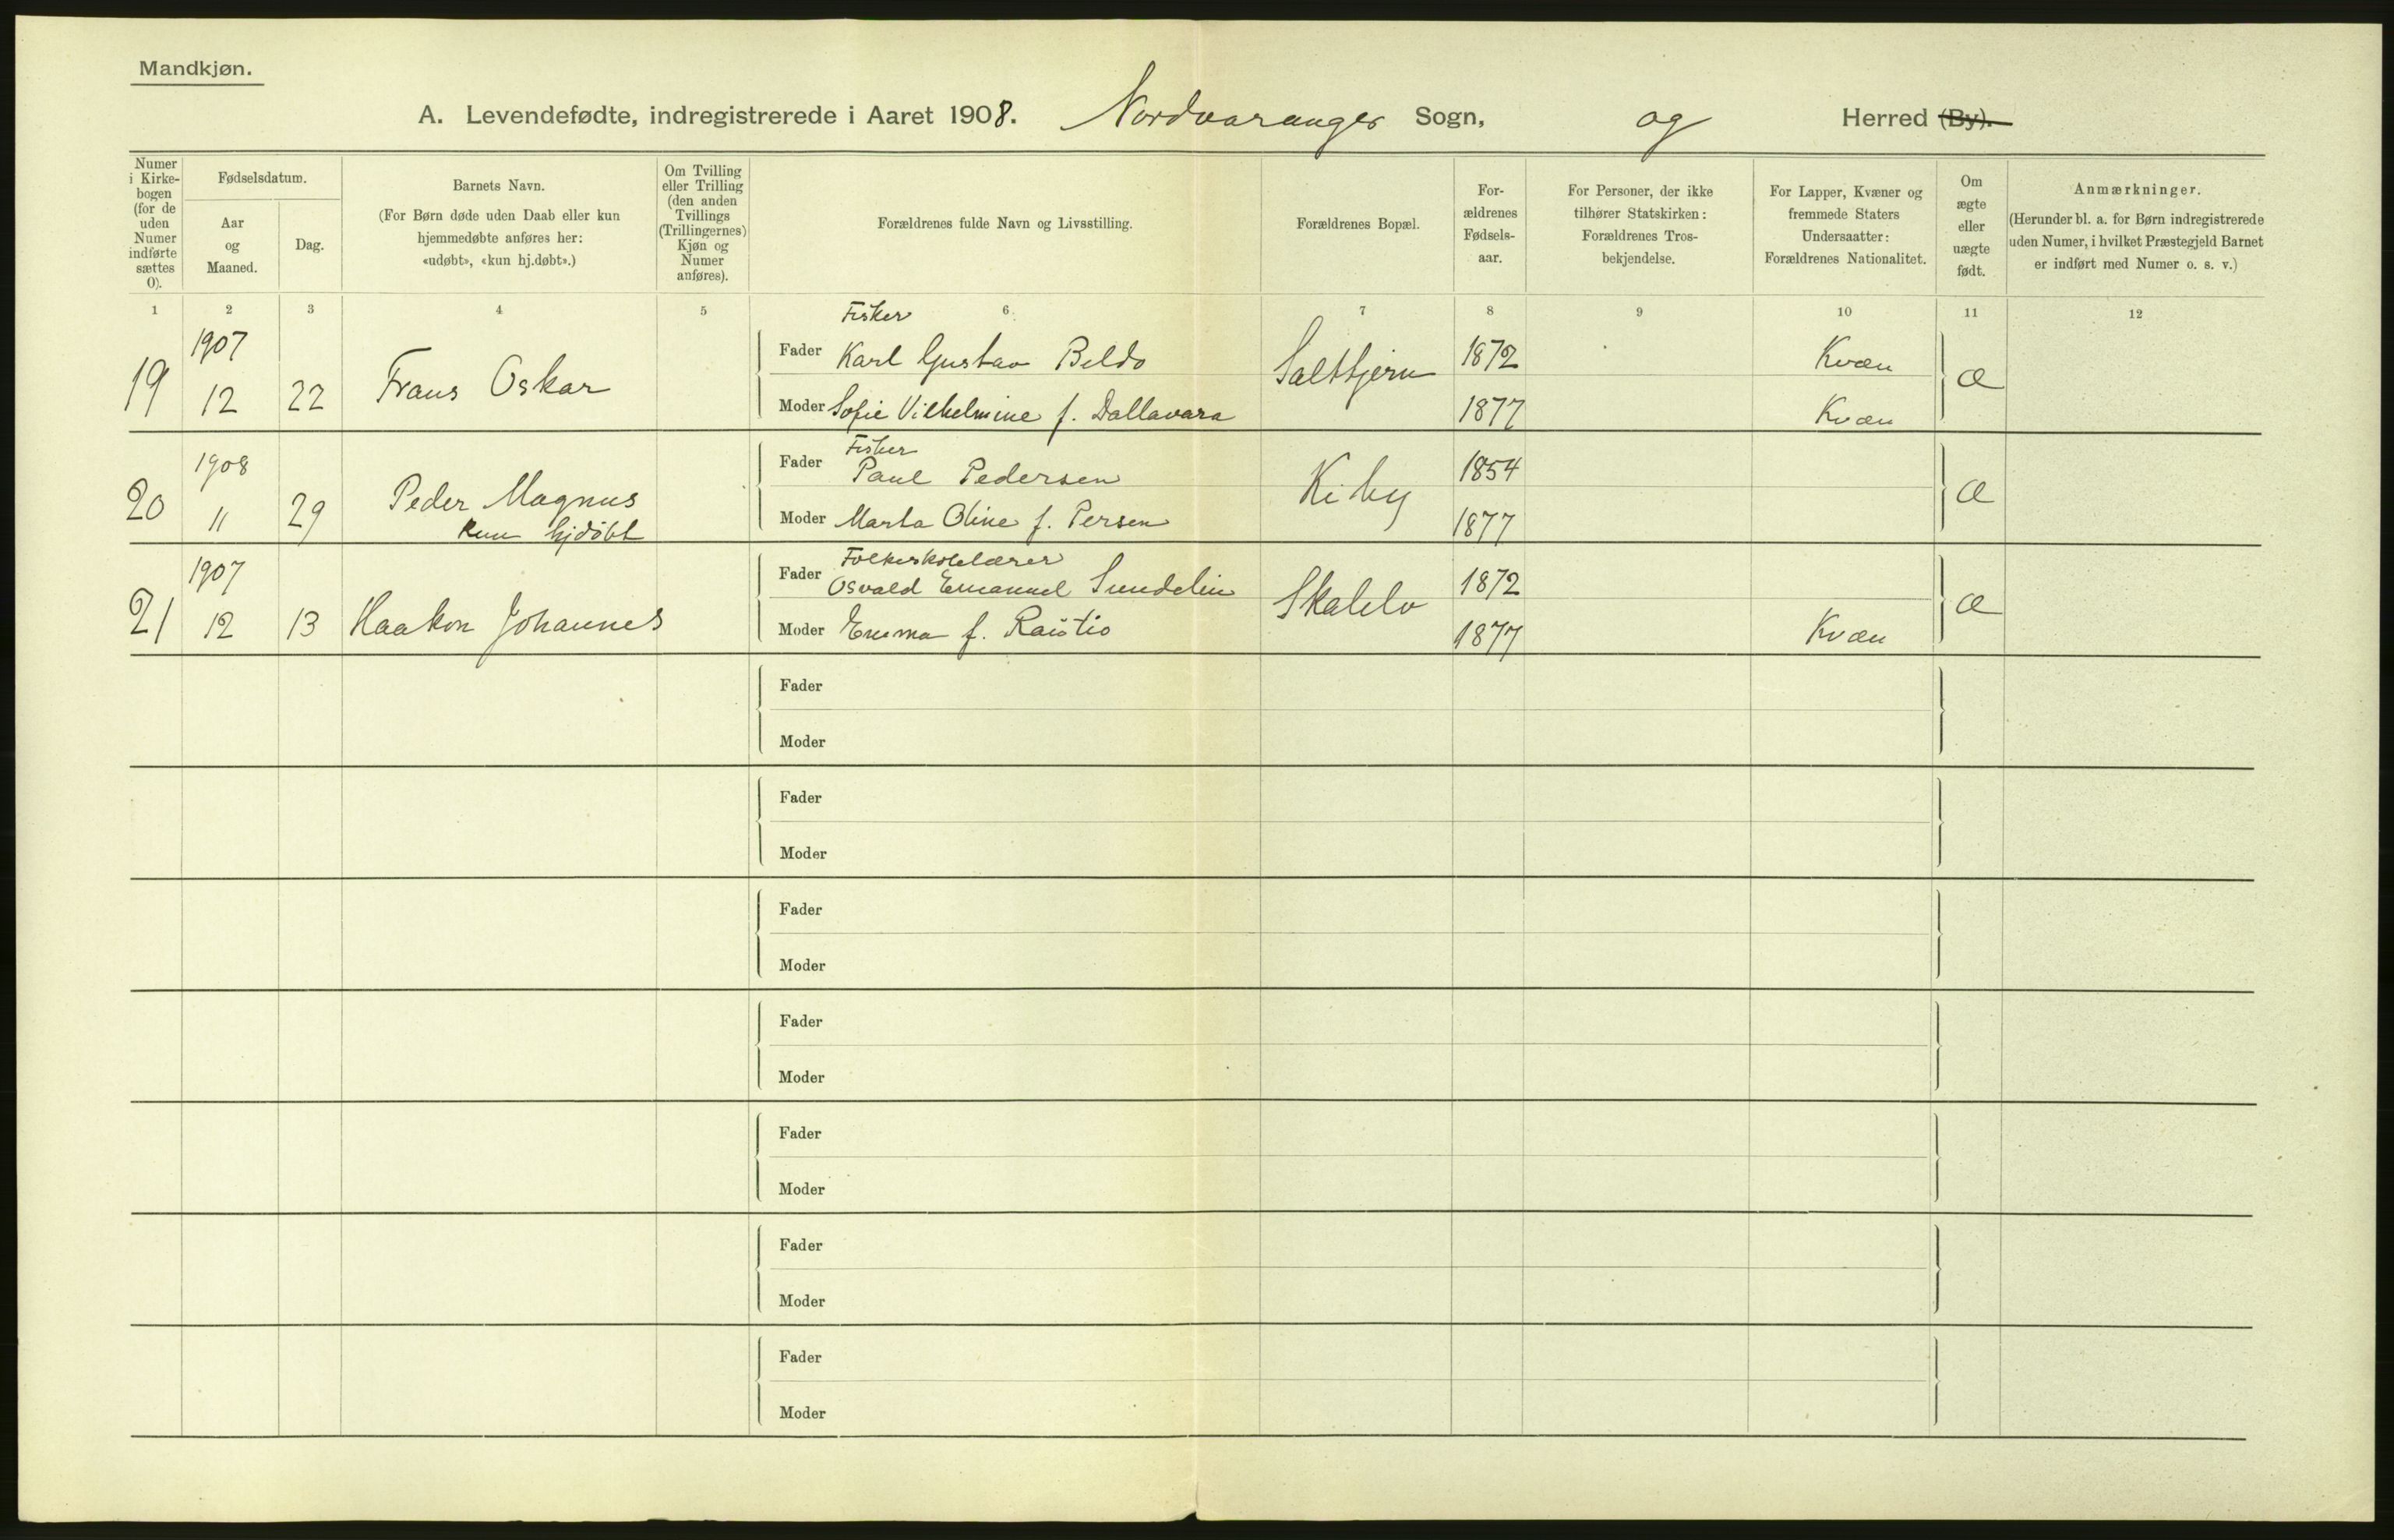 Mandkjøn.
A. Levendefødte, indregistrerede i Aaret 1908. Nordvaranger Sogn, og Herred (By).
Numer i Kirke-bogen (for de uden Numer indførte sættes 0).
Fødselsdatum.
Aar og Maaned.
Dag.
Barnets Navn.
(For Børn døde uden Daab eller kun hjemmedøbte anføres her: «udøbt», «kun hj.døbt».)
Om Tvilling eller Trilling (den anden Tvillings (Trillingernes) Kjøn og Numer anføres).
Forældrenes fulde Navn og Livsstilling.
Forældrenes Bopæl.
For-ældrenes Fødsels-aar.
For Personer, der ikke tilhører Statskirken: Forældrenes Tros-bekjendelse.
For Lapper, Kvæner og fremmede Staters Undersaatter: Forældrenes Nationalitet.
Om ægte eller uægte født.
Anmærkninger.
(Herunder bl. a. for Børn indregistrerede uden Numer, i hvilket Præstegjeld Barnet er indført med Numer o. s. v.)
1 2 3 4 5 6. 7 8 9 10 11 12
Fisker
1907
Fader Karl Gustav Beldo 1872 Kvæn
19 12 22 Frans Oskar Saltkjern æ
Moder Sofie Vilhelmine f. Dallavara 1877 Kvæn
Fisker
1908 Fader Paul Pedersen 1854
20 11 29 Peder Magnus Kiby æ
kun hjdöbt Moder Marta Oline f. Persen 1877
Folkeskolelærer
1907 Fader Osvald Emanuel Sundelin 1872
21 12 13 Haakon Johannes Skalelv æ
Moder Emma f. Rautio 1877 Kvæn
Fader
Moder
Fader
Moder
Fader
Moder
Fader
Moder
Fader
Moder
Fader
Moder
Fader
Moder